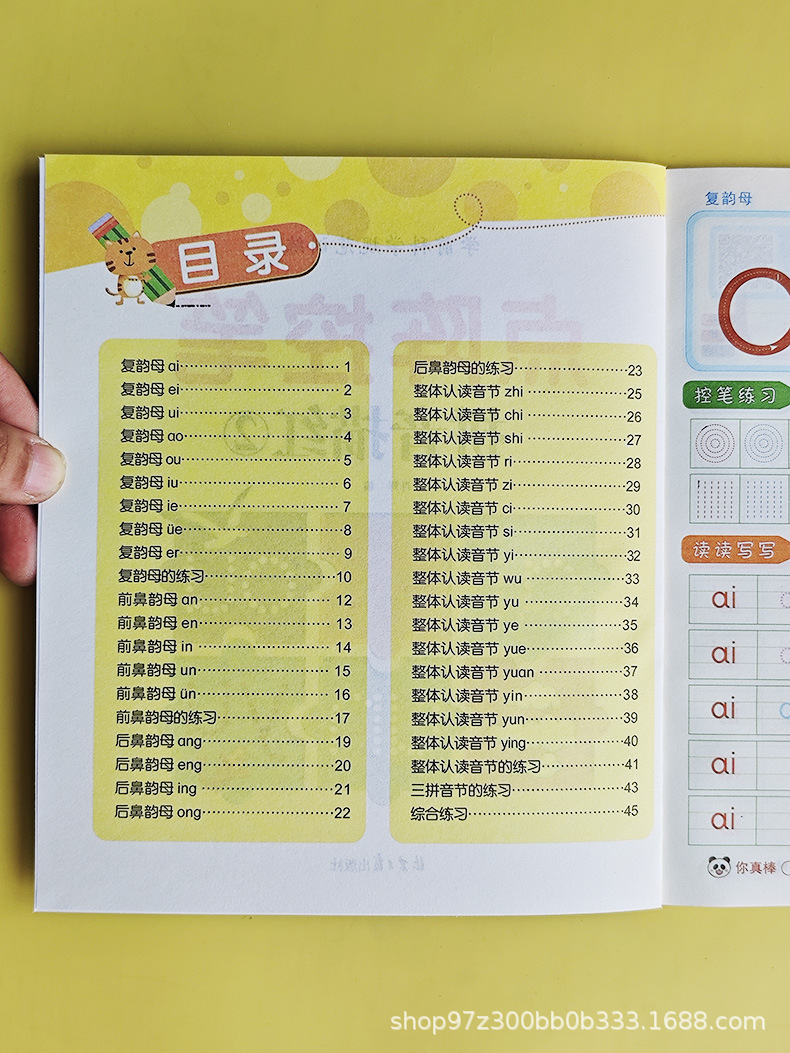 目录
复韵母 ai 1
复韵母 ei 2
复韵母 ui 3
复韵母 ao 4
复韵母 ou 5
复韵母 iu 6
复韵母 ie 7
复韵母 üe 8
复韵母 er 9
复韵母的练习 10
前鼻韵母 an 12
前鼻韵母 en 13
前鼻韵母 in 14
前鼻韵母 un 15
前鼻韵母 ün 16
前鼻韵母的练习 17
后鼻韵母 ang 19
后鼻韵母 eng 20
后鼻韵母 ing 21
后鼻韵母 ong 22
后鼻韵母的练习 23
整体认读音节 zhi 25
整体认读音节 chi 26
整体认读音节 shi 27
整体认读音节 ri 28
整体认读音节 zi 29
整体认读音节 ci 30
整体认读音节 si 31
整体认读音节 yi 32
整体认读音节 wu 33
整体认读音节 yu 34
整体认读音节 ye 35
整体认读音节 yue 36
整体认读音节 yuan 37
整体认读音节 yin 38
整体认读音节 yun 39
整体认读音节 ying 40
整体认读音节的练习 41
三拼音节的练习 43
综合练习 45
复韵母
控笔练习
读读写写
ai
ai
ai
ai
ai
你真棒
shop97z300bb0b333.1688.com